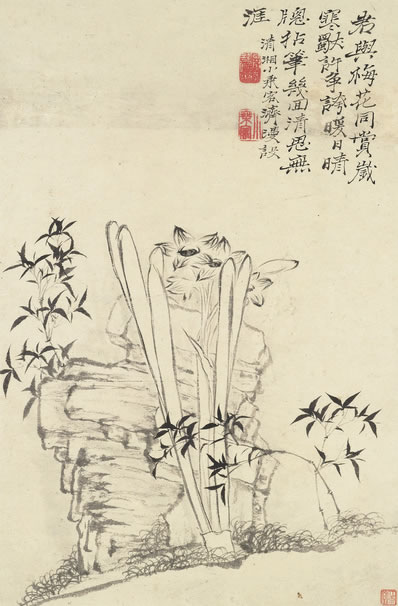 君與梅花同賞歲
寒獸許爭誇暖日晴
窗拈筆幾回清思無
涯
清湘小乘客濟漫設